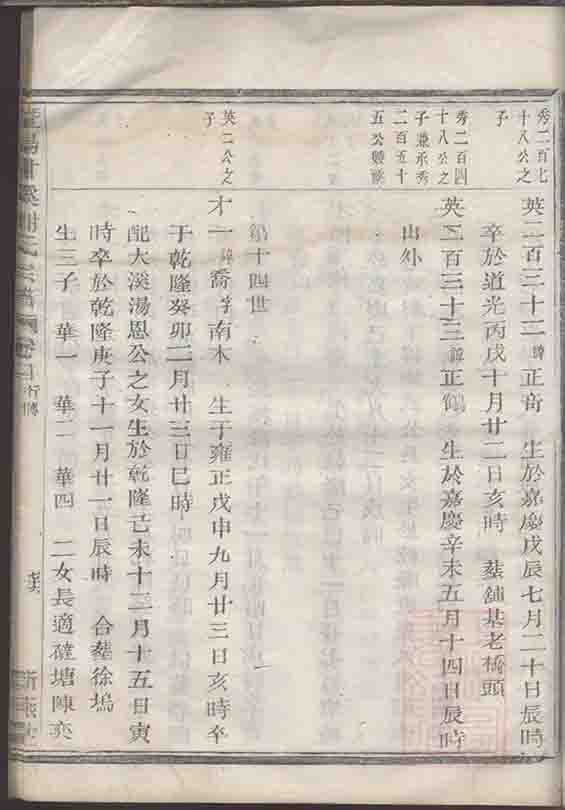 秀二百七
十八公之
子
英二百三十二諱正奇 生於嘉慶戊辰七月二十日辰時
卒於道光丙戌十月廿二日亥時 塟舖基老橋頭
秀二百四
十八公之
子兼承秀
二百五十
五公
英二百三十三諱正鶴 生於嘉慶辛未五月十四日辰時
山外
十四世
英二公之
子
才一諱喬字南木 生于雍正戊申九月廿三日亥時卒
于乾隆癸卯二月廿三日巳時
配大溪湯恩公之女生於乾隆己未十二月十五日寅
時卒於乾隆庚子十一月廿一日辰時 合塟徐塢
生三子 華一 華二 華四 二女長適塘陳奕